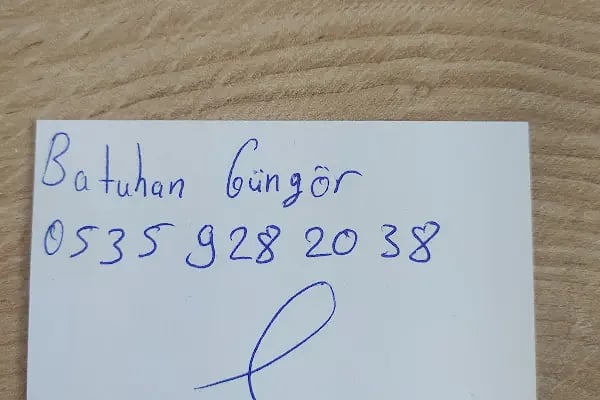 Batuhan Güngör
0535 928 20 38